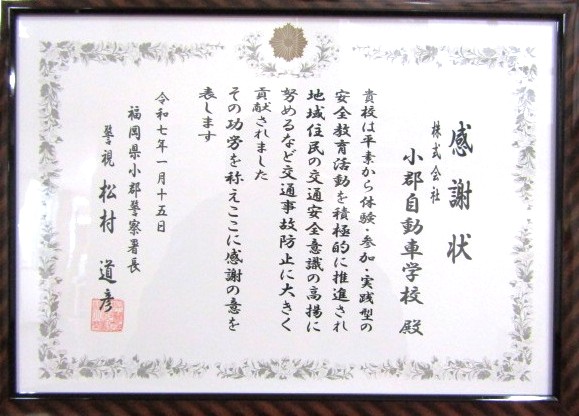 感謝状
株式会社
小郡自動車学校 殿
貴校は平素から体験・参加・実践型の
安全教育活動を積極的に推進され
地域住民の交通安全意識の高揚に
努めるなど交通事故防止に大きく
貢献されました
その功労を称えここに感謝の意を
表します
令和七年一月十五日
福岡県小郡警察署長
警視 松村 道彦